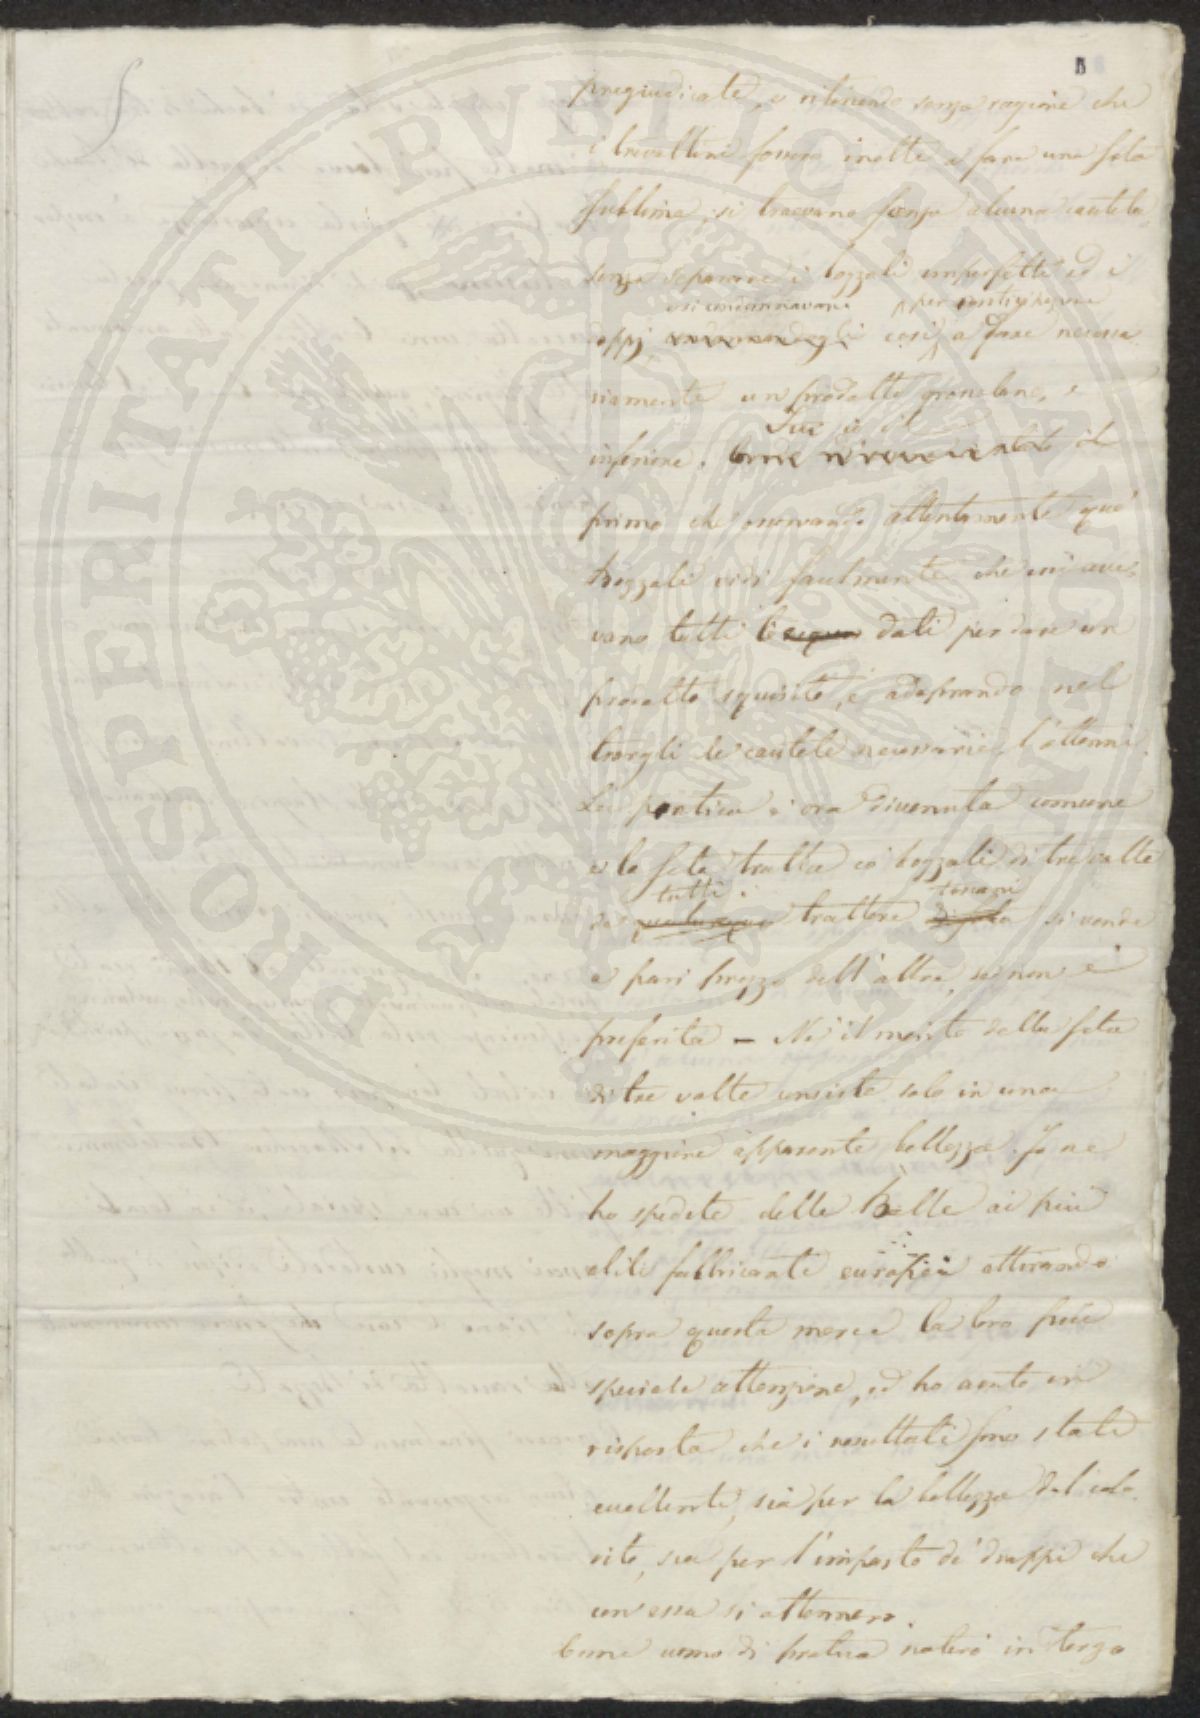 pregiudicate, e ritenendo senza ragione che
i trevoltini fossero inetti a fare una seta
sublime, si traevano senza alcuna cautela
senza separarne i bozzoli imperfetti ed i
e si condannavano per contiguazione
doppj così a fare necessa
riamente un prodotto grossolano, e
Fui io il
inferiore. Come il
primo che osservando attentamente que'
bozzoli vidi facilmente che vi ave
vano tutti li dati per dare un
prodotto squisito, e adoprando nel
trargli le cautele necessarie, l'ottenni.
La pratica è ora divenuta comune
e la seta tratta co' bozzoli di tre volte
tutti i toscani
da qualunque trattore di seta si vende
a pari prezzo dell'altra, se non è
preferita — Nè il merito della seta
di tre volte consiste solo in una
maggiore apparente bellezza. Io ne
ho spedite delle Balle ai più
abili fabbricanti europei attirando
sopra questa merce la loro più
speciale attenzione, ed ho avuto in
risposta che i resultati sono stati
eccellenti, sia per la bellezza del colo
rito, sia per l'impasto de' drappi che
con essa si ottennero.
Come uomo di pratica noterò in terzo
PROSPERITATI PVBLICAE AVGENDAE